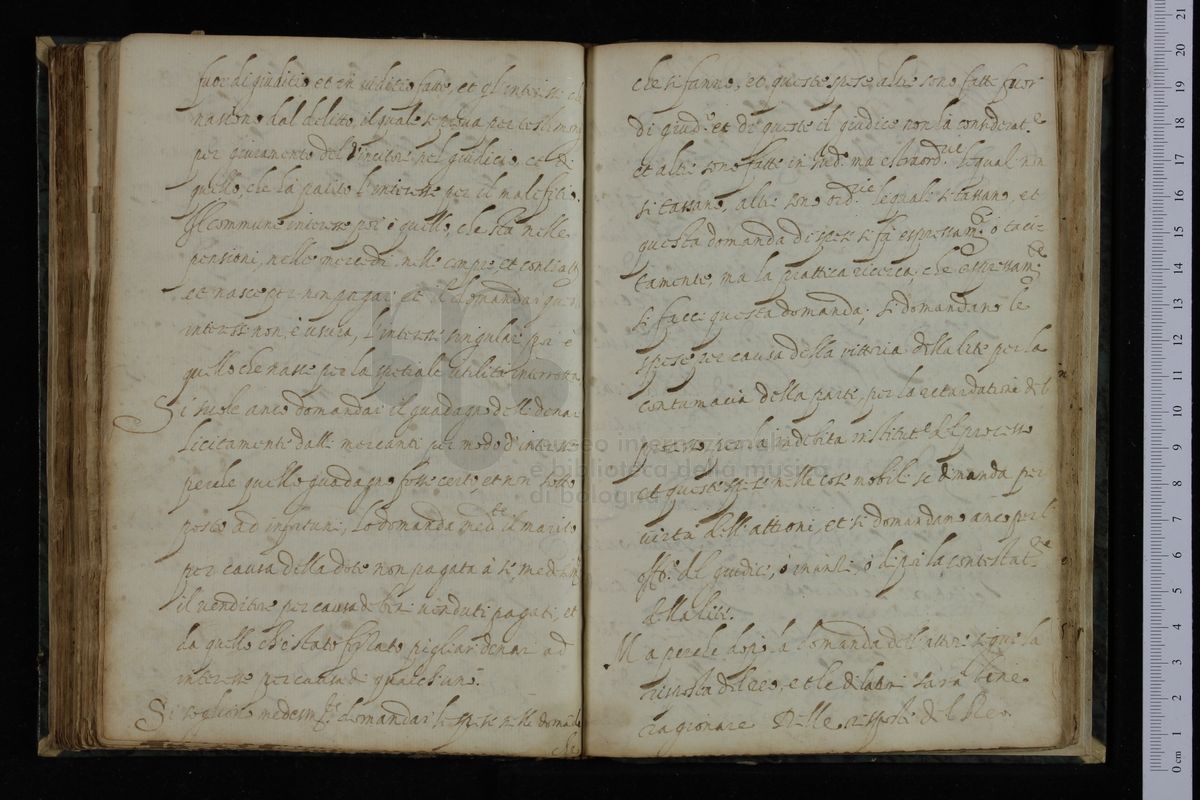 fuor di giudicio et in iuditio fatte, et gl'interessi ch
nascono dal delitto, il quale si prova per testimonij
per giuramento dell'Auttore nel giudicio, et di
quello, che ha patito l'interesse per il malefitio.
Il commune interesse poi è quello, che sta nelle
pensioni, nelle mercedi, nelle compre, et contratti
et nasce per non pagar et il domandar quest
interesse non è usura, l'interesse singular poi è
quello che nasce per la spetiale utilità interrotta
Si suole anco domandar il guadagno delli denari
licitamente dalli mercanti per modo d'interesse
perche quello guadagno fosse certo, et non sotto
posto ad infortuni, Lo domanda medte il marito
per causa della dote non pagata à se, medem
il venditore per causa de beni venduti pagati, et
da quello ch'è stato forzato pigliar denar ad
interesse per causa de qualch'uno.
Si vogliono medesim.te domandar le spese nelle domande
che
che si fanno, et queste spese altre sono fatte fuor
di giud.o et di queste il giudice non ha considerat.ne
et altre sono fatte in Iud.o ma estraord.rie le quali non
si tassano, altre sono ord.rie le quali si tassano, et
questa domanda di spese si fa espressam.te ò taci-
tamente, ma la prattica ricerca, che espressam.te
si facci questa domanda; si domandano le
spese per causa della vittoria della lite per la
contumacia della parte, per la retardatione del
processo per la indebita institut.e del processo
et queste spese nelle cose mobili se dimanda per
virtù dell'attioni, et si domandano anco per l'
off.o del giudice, ò inanzi, ò dipoi la contestat.ne
della lite.
Ma perche doppo la domanda dell'attore segue la
risposta del reo, et le dilationi sarà bene
ragionare Delle risposte del Reo
museo internazionale
e biblioteca della musica
di bologna
0 cm 1 2 3 4 5 6 7 8 9 10 11 12 13 14 15 16 17 18 19 20 21